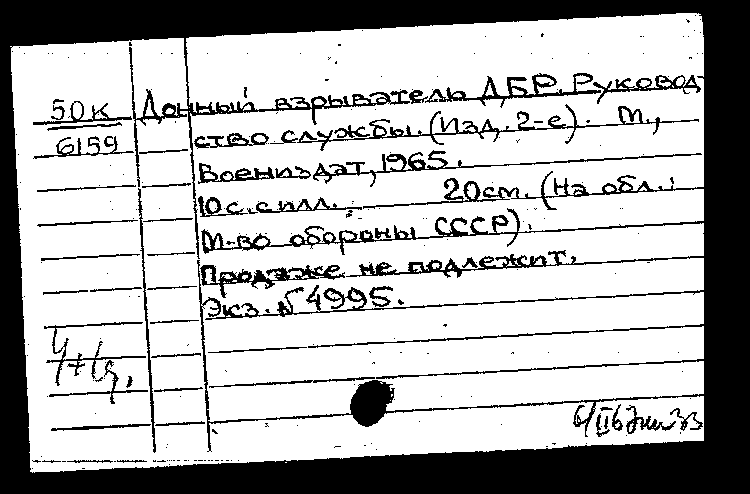 50к Донный взрыватель ДБР. Руковод
6159 ство службы. (Изд. 2-е). М.,
Воениздат, 1965.
10 с. с илл. 20 см. (На обл.:
М-во обороны СССР).
Продаже не подлежит.
Экз. № 4995.